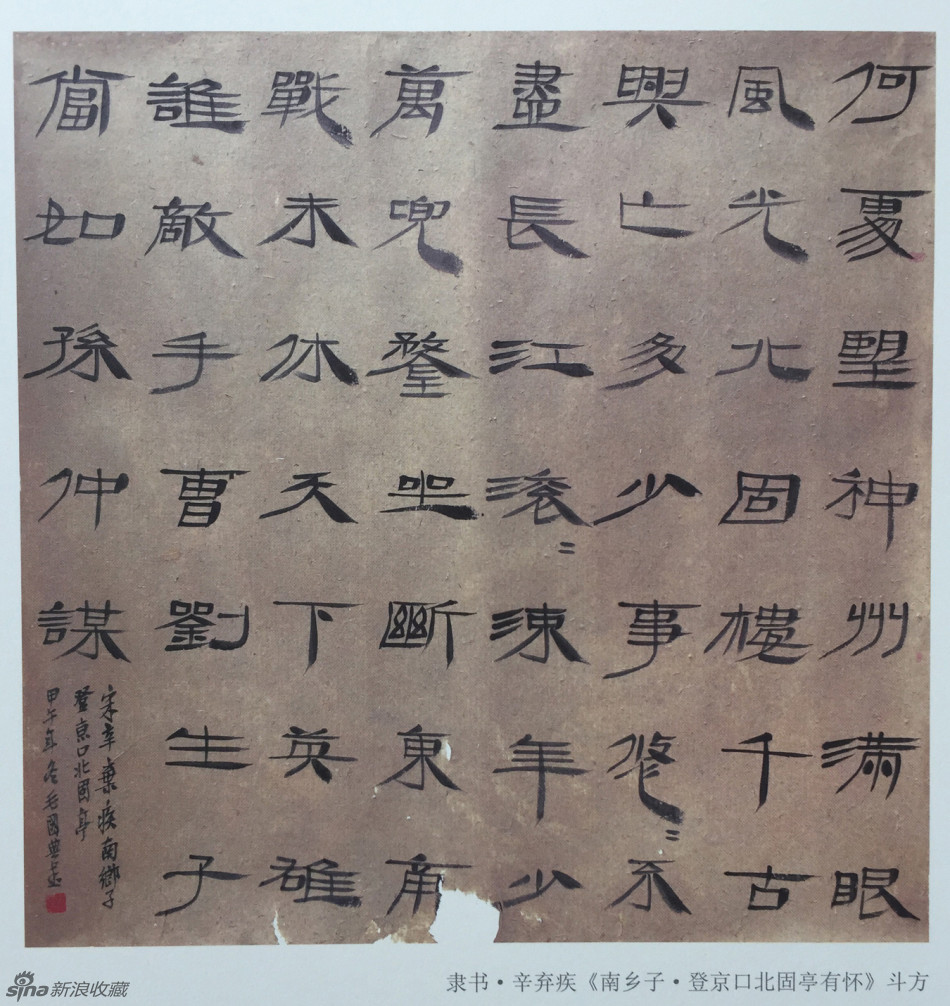 何處望神州滿眼
風光北固樓千古
興亡多少事悠=不
盡長江滾=流年少
萬兜鍪坐斷東南
戰未休天下英雄
誰敵手曹劉生子
當如孫仲謀
宋辛棄疾南鄉子
登京口北固亭
甲午年冬毛國典書
隶书·辛弃疾《南乡子·登京口北固亭有怀》斗方
sina新浪收藏